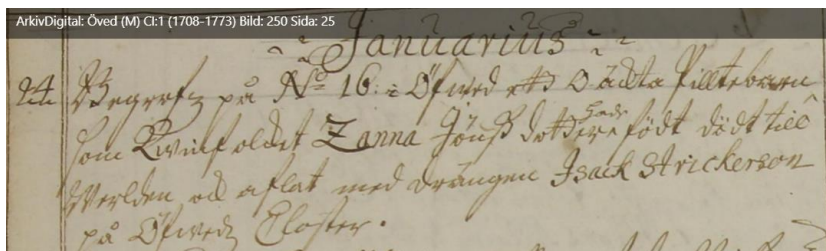 ArkivDigital: Öved (M) CI:1 (1708-1773) Bild: 250 Sida: 25
Januarius
24. Begrofz på No 16: i Öfwed ett Oächta Pilltebarn
som Kwinfolcket Zanna Jönß dotter hade födt dödt till
Werlden och aflat med drängen Isack Strickerson
på Öfwedz Closter.